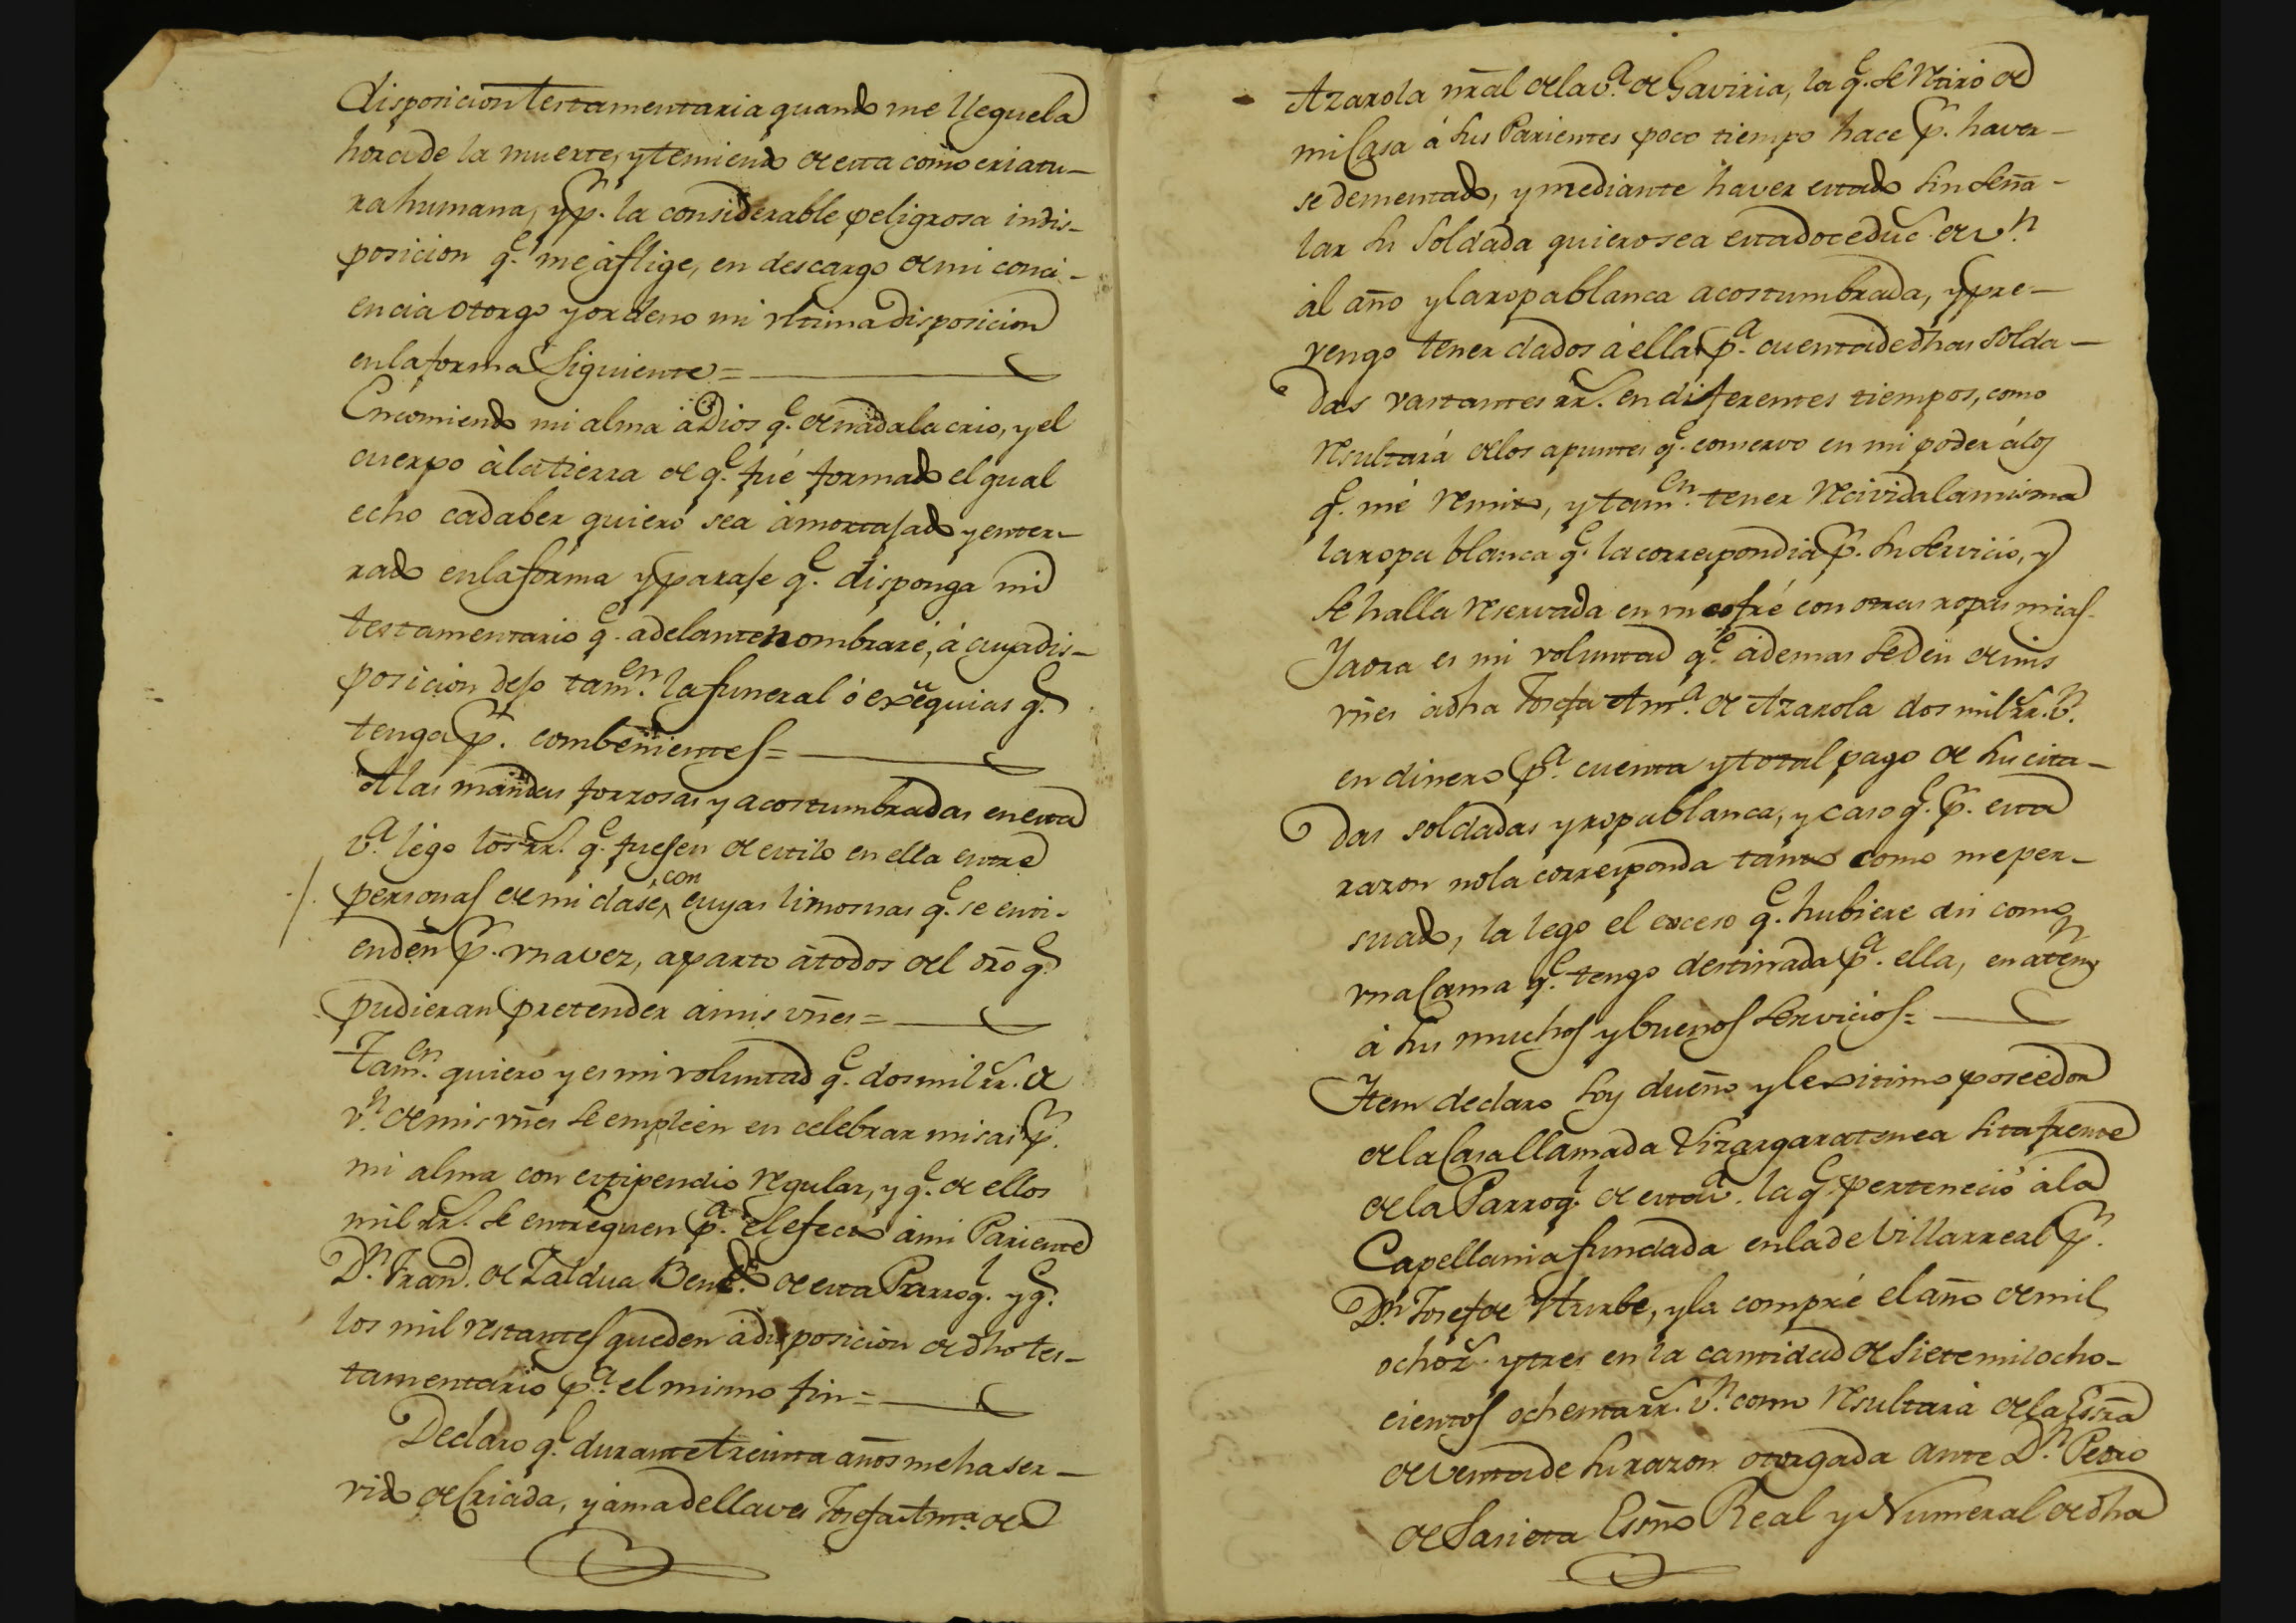 disposicion testamentaria quando me llegue la
hora de la muerte, y temiendo de esta como criatu-
ra humana, y p.r la considerable peligrosa indis-
posicion q.e me àflige, en descargo de mi conci-
encia otorgo y ordeno mi vltima disposicion
en la forma siguiente =
Encomiendo mi alma à Dios q.e de nada la crio, y el
cuerpo à la tierra de q.e fué formado el qual
echo cadaber quiero sea àmortajado y enter-
rado en la forma y paraje q.e disponga mi
testamentario q.e adelante nombraré, à cuya dis-
posicion dejo tam.en la funeral ó exequias q.e
tenga p.r combenientes =
A las mandas forzosas y acostumbradas en esta
v.a lego los rr.s q.e fuesen de estilo en ella entre
personas de mi clase, con cuyas limosnas q.e se enti-
enden p.r vna vez, aparto à todos del dro q.e
pudieran pretender à mis vnes =
Tam.en quiero y es mi voluntad q.e dos mil rr.s de
v.n de mis vnes se empleèn en celebrar misas p.r
mi alma con estipendio regular, y q.e de ellos
mil rr.s se entreguen p.a el efecto à mi Pariente
D.n Fran.co de Zaldua Benef.do de esta Parroq.l y q.e
los mil restantes queden à disposicion de dho tes-
tamentario p.a el mismo fin =
Declaro q.e durante treinta años me ha ser-
vido de Criada, y àma de llaves Josefa Ant.a de
Azarola nral de la v.a de Gaviria, la q.e se retiró de
mi Casa á sus Parientes poco tiempo hace p.r haver-
se dementado, y mediante haver estado sin seña-
lar su soldada quiero sea esta doce duc.s de v.n
àl año y la ropa blanca acostumbrada, y pre-
vengo tener dados à ella p.a cuenta de dhas solda-
das vastantes rr.s en diferentes tiempos, como
resultará de los apuntes q.e conservo en mi poder á los
q.e me remito, y tam.en tener recivida la misma
la ropa blanca q.e la correspondia p.r su servicio, y
se halla reservada en vn cofré con otras ropas mias.
Y aora es mi voluntad q.e àdemas se den de mis
vnes à dha Josefa Ant.a de Azarola dos mil rr.s v.n
en dinero p.a cuenta y total pago de sus cita-
das soldadas y ropa blanca, y caso q.e p.r esta
razon no la corresponda tanto como me per-
suado, la lego el exceso q.e hubiere asi como
vna Cama q.e tengo destinada p.a ella, en atenn
à sus muchos y buenos servicios =
Item declaro soy dueño y lexitimo poseedor
de la Casa llamada Vizargaratenea sita frente
de la Parroq.l de esta v.a la q.e perteneció à la
Capellania fundada en la de Villarreal p.r
D.n Josef de Yturbe, y la compré el año de mil
ochoz.s y tres en la cantidad de siete mil ocho-
cientos ochenta rr.s v.n como resultará de la Essra
de venta de su razon otorgada ante D.n Pedro
de Sasieta Essno Real y Numeral de dha